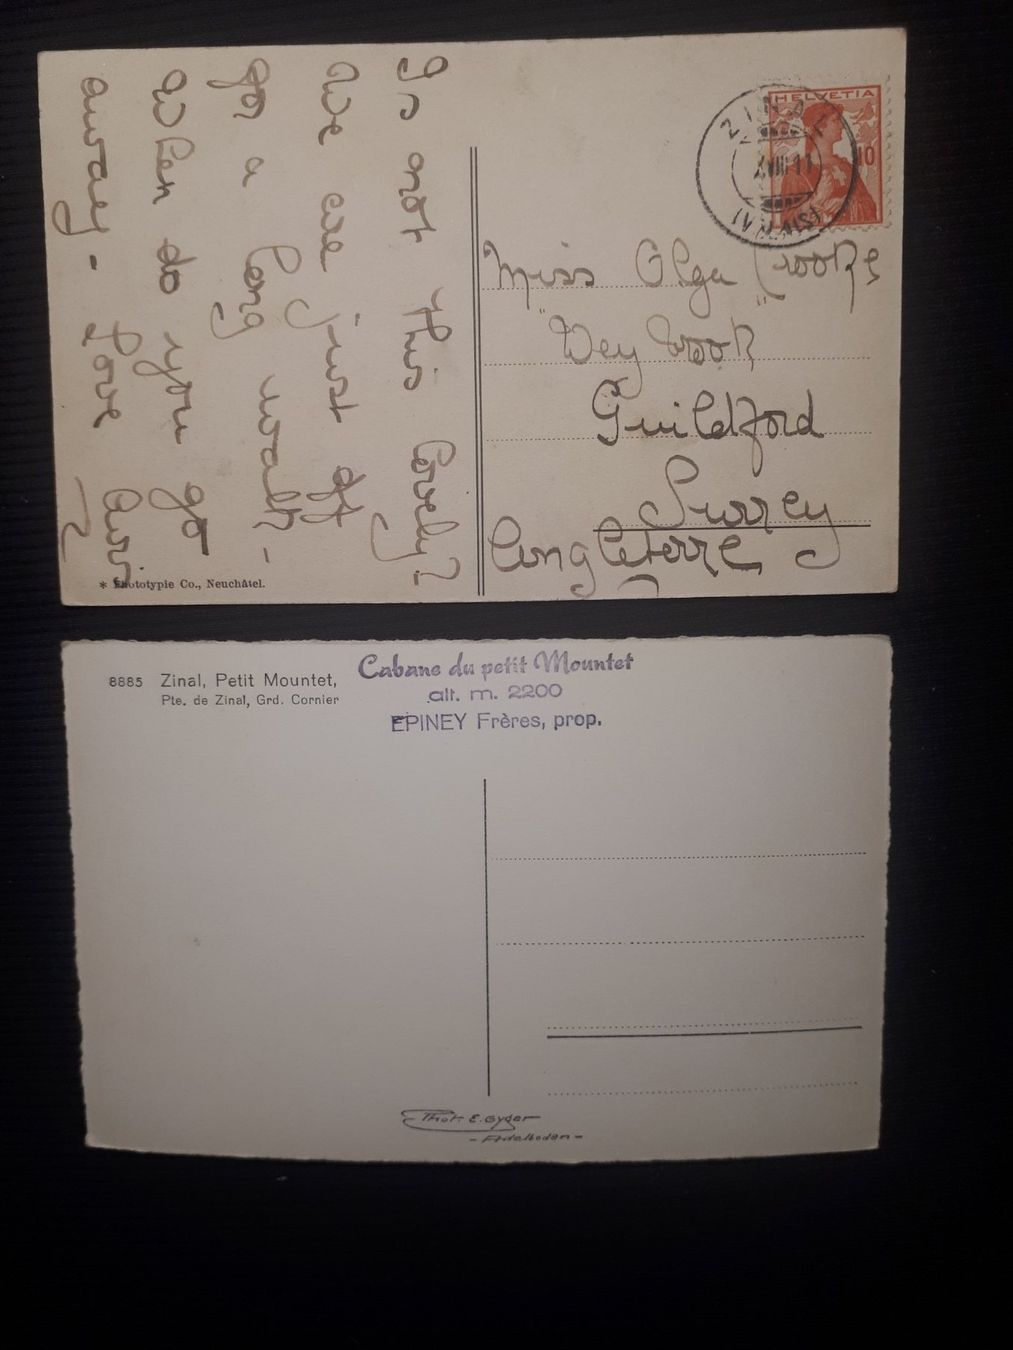 Is not this lovely?
We are just off
for a long walk -
When do you go
away - Love
* Phototypie Co., Neuchâtel.
HELVETIA
10
ZINAL
VIII 11
(VALAIS)
Miss Olga Crooke
"Wey brook"
Guildford
Surrey
Angleterre
8885 Zinal, Petit Mountet,
Pte. de Zinal, Grd. Cornier
Cabane du petit Mountet
alt. m. 2200
EPINEY Frères, prop.
Phot. E. Gyger
- Adelboden -